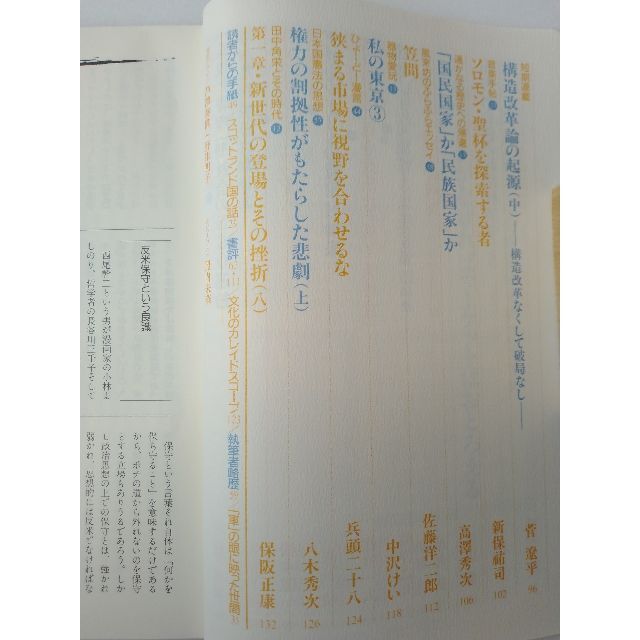 短期連載
構造改革論の起源(中)──構造改革なくして破局なし──
菅 遼平 96
ソロモン・聖杯を探索する者
新保祐司 102
「国民国家」か「民族国家」か
高澤秀次 106
笠間
佐藤洋二郎 112
私の東京③
中沢けい 118
狭まる市場に視野を合わせるな
兵頭二十八 124
日本国憲法の思想
権力の割拠性がもたらした悲劇(上)
八木秀次 126
田中角栄とその時代
第一章・新世代の登場とその挫折(八)
保阪正康 132
読者からの手紙
スコットランド国の話
書評
文化のカレイドスコープ
執筆者略歴
「軍」の眼に映った世間
反米保守という良識
西尾幹二という男が漫画家の小林よ
しのり、哲学者の長谷川三千子そして
保守という言葉それ自体は「何かを
保ち守ること」を意味するだけである
から、ポチの道から外れないのを保守
とする立場もありうるであろう。しか
し政治思想の上での保守とは、嫌かれ
弱かれ、思想的には反米でなければな